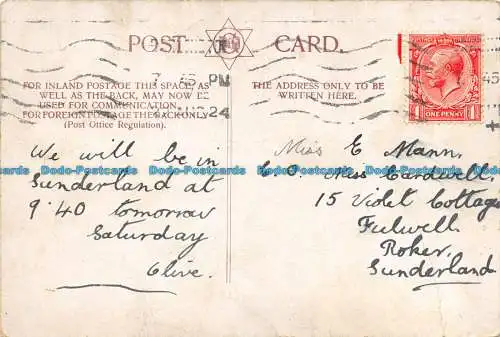 POST CARD.
FOR INLAND POSTAGE THIS SPACE, AS
WELL AS THE BACK, MAY NOW BE
USED FOR COMMUNICATION.
FOR FOREIGN POSTAGE THE BACK ONLY
(Post Office Regulation).
THE ADDRESS ONLY TO BE
WRITTEN HERE.
45 PM
24
45
ONE PENNY
We will be in
Sunderland at
9.40 tomorrow
Saturday
Olive.
Miss E Mann.
C/O Miss Cardwell.
15 Violet Cottages
Fulwell
Roker.
Sunderland
Dodo-Postcards Dodo-Postcards Dodo-Postcards Dodo-Postcards